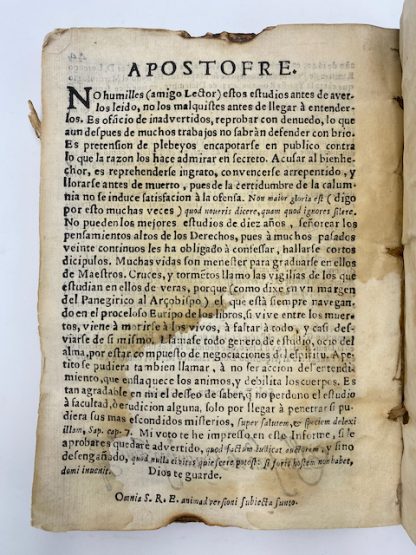 APOSTOFRE.
No humilles (amigo Lector) estos estudios antes de aver-
los leido, no los malquistes antes de llegar à entender-
los. Es oficio de inadvertidos, reprobar con denuedo, lo que
aun despues de muchos trabajos no sabràn defender con brio.
Es pretension de plebeyos encapotarse en publico contra
lo que la razon los hace admirar en secreto. Acusar al bienhe-
chor, es reprehenderse ingrato, convencerse arrepentido, y
llorarse antes de muerto, pues de la certidumbre de la calum-
nia no se induce satisfacion à la ofensa. Non maior gloria est (digo
por esto muchas veces) quod nourris dicere, quam quod ignores silere.
No pueden los mejores estudios de diez años, señorear los
pensamientos altos de los Derechos, pues à muchos pasados
veinte continuos les ha obligado à confessar, hallarse cortos
dicipulos. Muchas vidas son menester para graduarse en ellos
de Maestros. Cruces, y tormētos llamo las vigilias de los que
estudian en ellos de veras, porque (como dixe en vn margen
del Panegirico al Arçobispo) el que està siempre navegan-
do en el proceloso Euripo de los libros, si vive entre los muer-
tos, viene à morirse à los vivos, à faltar à todo, y casi des-
viarse de si mismo. llamase todo genero de estudio, ocio del
alma, por estar compuesto de negociaciones del espiritu. Ape-
tito se pudiera tambien llamar, à no ser accion del entendi-
miento, que enflaquece los animos, y debilita los cuerpos. Es
tan agradable en mi el deseo de saber, q̃ no perdono el estudio
à facultad, ò erudicion alguna, solo por llegar à penetrar si pu-
diera sus mas escondidos misterios, super salutem, et speciem delexi
illam, Sap. cap. 7. Mi voto te he impresso en este Informe, si le
aprobares quedarè advertido, quod factum iudicat auctorem, y sino
desengañado, quod nulla civitas quiescere potest: si foris hostem non habet,
domi invenit. Dios te guarde.
Omnia S. R. E. animadversioni subiecta sunto.